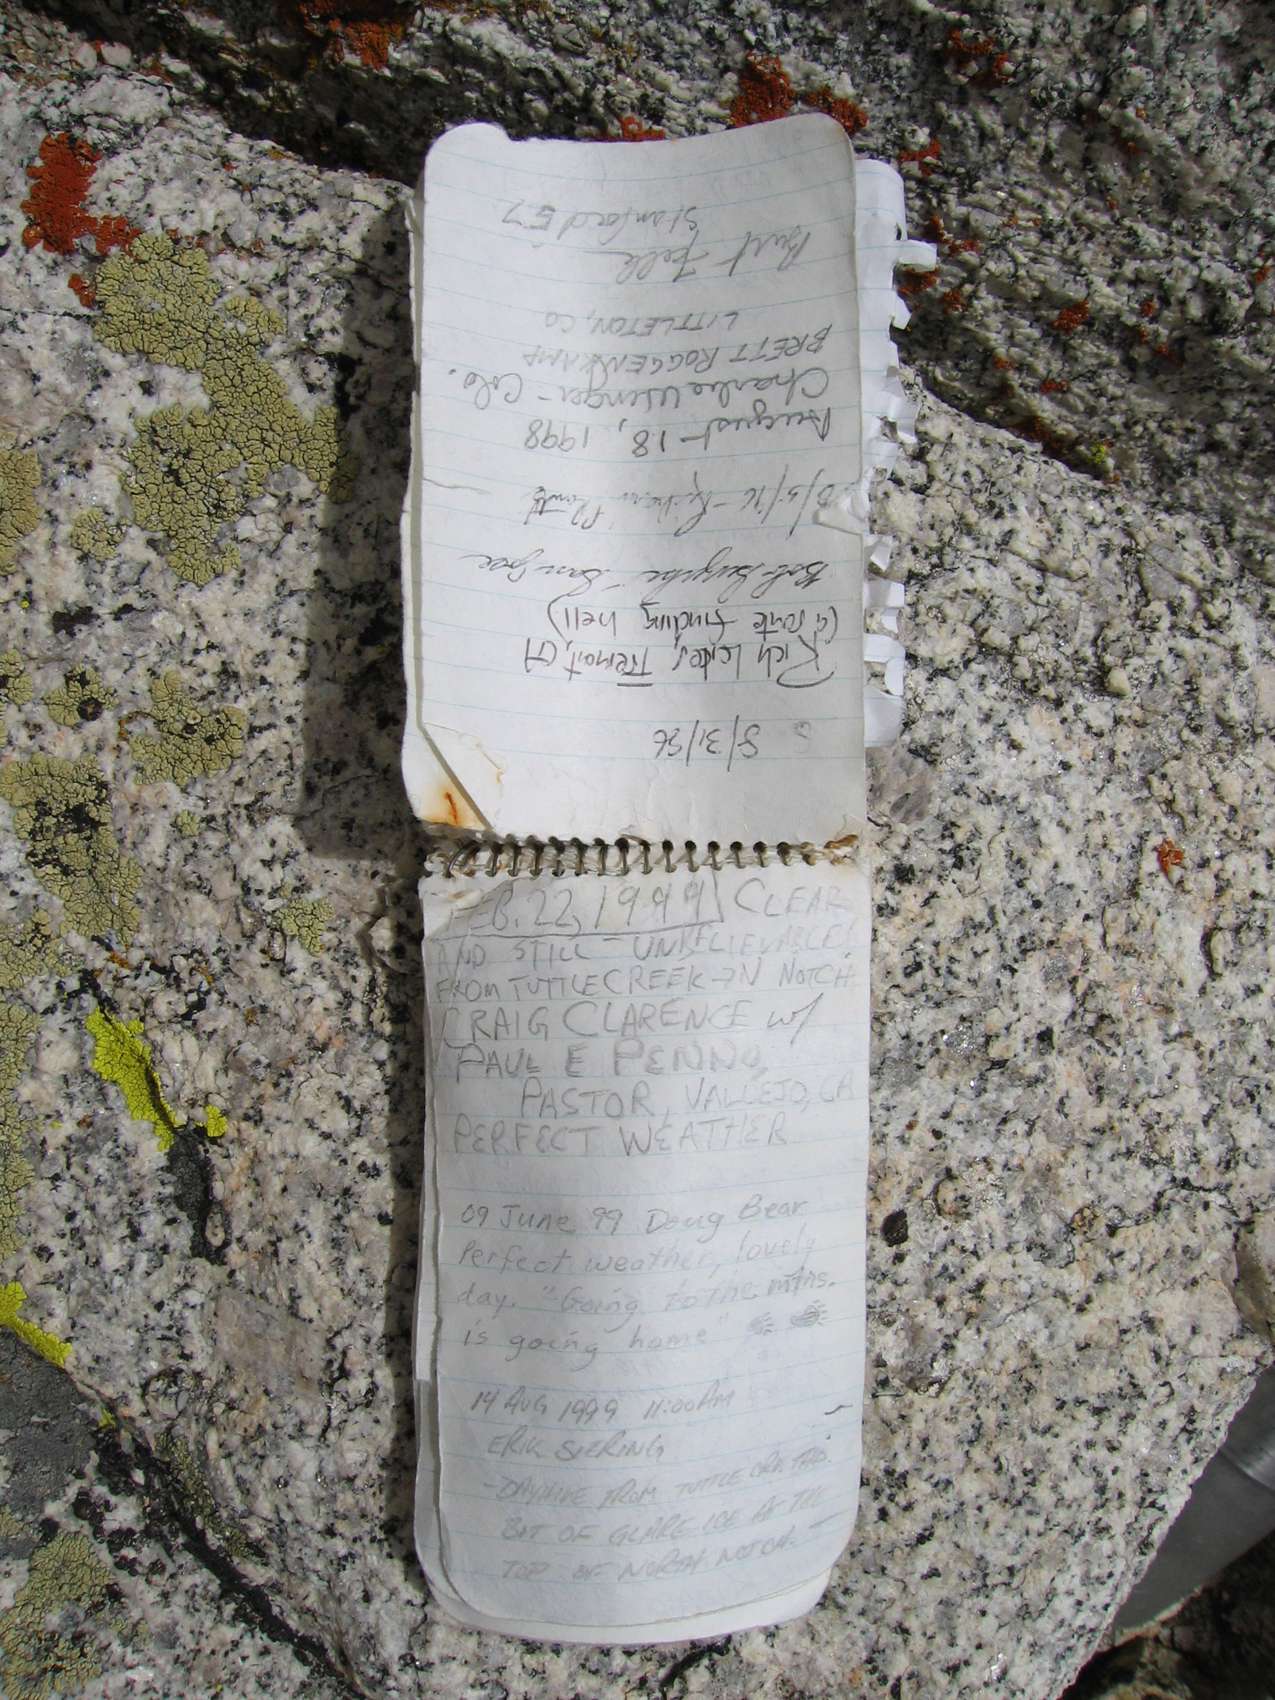 8/31/86
Rich Fremont, CA
(a route finding hell)
Bob San Jose
August 18, 1998
Charlie Winger - Colo.
BRETT ROGGENKAMP
LITTLETON, CO
Burt
Stanford 57
FEB. 22, 1999 CLEAR
AND STILL - UNBELIEVABLE!
FROM TUTTLE CREEK → N NOTCH
CRAIG CLARENCE w/
PAUL E PENNO,
PASTOR, VALLEJO, CA
PERFECT WEATHER
09 June 99 Doug Bear
Perfect weather, lovely
day. "Going to the mtns.
is going home"
14 AUG 1999 11:00AM
ERIK SIERING
- DAYHIKE FROM TUTTLE CRK
BIT OF GLARE ICE AT THE
TOP OF NORTH NOTCH. -